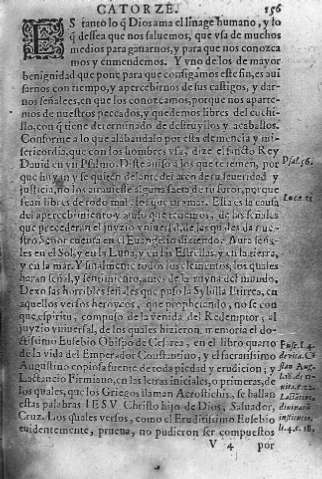 CATORZE. 156
ES tanto lo q̃ Dios ama el linage humano, y lo
q̃ dessea que nos saluemos, que vsa de muchos
medios para ganarnos, y para que nos conozca
mos y enmendemos. Y vno de los de mayor
benignidad que pone para que consigamos este fin, es aui
sarnos con tiempo, y apercebirnos de sus castigos, y dar-
nos señales, en que los conozcamos, porque nos aparte-
mos de nuestros peccados, y quedemos libres del cuchi-
llo, con q̃ tiene determinado de destruyllos y acaballos.
Conforme a lo que alabandolo por esta clemencia y mi-
sericordia, que con los hombres vsa, dize el sancto Rey
Dauid en vn Psalmo. Diste auiso a los que te temen, por
que huyan y se quiten delante del arco de tu seueridad y
justicia, no los atrauiesse alguna saeta de tu furor, porque
sean libres de todo mal, los que te amar. Esta es la causa
Psal. 56.
del apercebimiento y auiso que tenemos, de las señales
Luc. 21
que precederan el juyzio vniuersal, de las quales da nue-
stro Señor cuenta en el Euangelio diziendo. Aura seña-
les en el Sol, y en la Luna, y en las Estrellas, y en la tierra,
y en la mar. Y finalmente todos los elementos, los quales
haran señal, y sentimiento, antes de la ruyna del mundo.
Dexo las horribles señales que puso la Sybilla Eritrea, en
aquellos versos heroycos, que prophetizando, no se con
que espiritu, compuso de la venida del Redemptor, al
juyzio vniuersal, de los quales hizieron memoria el do-
ctissimo Eusebio Obispo de Cesarea, en el libro quarto
de la vida del Emperador Constantino, y el sacratissimo
Augustino copiosa fuente de toda piedad y erudicion; y
Lactancio Firmiano, en las letras iniciales, o primeras, de
los quales, que los Griegos llaman Acrostichis, se hallan
estas palabras IESV Christo hijo de Dios, Saluador,
Cruz. Los quales versos, como el Eruditissimo Eusebio
euidentemente, prueua, no pudieron ser compuestos
V 4 por